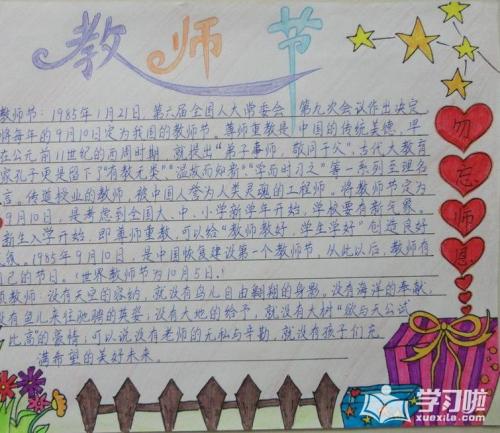 教师节
教师节：1985年1月21日，第六届全国人大常委会 第九次会议作出决定
将每年的9月10日定为我国的教师节。尊师重教是中国的传统美德，早
在公元前11世纪的西周时期，就提出"弟子事师，敬同于父"。古代大教育
家孔子更是留下"有教无类""温故而知新""学而时习之"等一系列至理名
言。传道授业的教师，被中国人誉为人类灵魂的工程师。将教师节定为
9月10日，是考虑到全国大、中、小学新学年开始，学校要有新气象。
新生入学开始，即尊师重教，可以给"教师教好，学生学好"创造良好
气氛。1985年9月10日，是中国恢复建设第一个教师节，从此以后，教师有
自己的节日。（世界教师节为10月5日。）
教师：没有天空的容纳，就没有鸟儿自由翱翔的身影。没有海洋的奉献，
没有鱼儿来往驰骋的英姿；没有大地的给予，就没有大树"欲与天公试
比高"的豪情；可以说没有老师的无私与辛勤，就没有孩子们充
满希望的美好未来。
勿
忘
师
恩
学习啦
xuexila.com